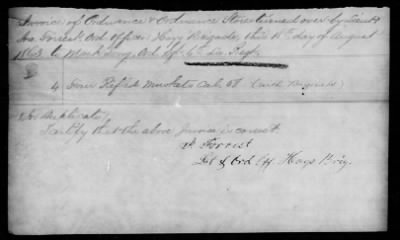 Invoice of Ordnance & Ordnance Stores turned over by Lieut
Forrest, Ord Officer Hays Brigade, this 18th day of August
1863 to Ord Sgt 6th La. Regt
4 Four Rifled Muskets Cal. 58 (with Bayonets)
In duplicate,
I certify that the above Invoice is correct.
Forrest
Lt & Ord Off Hays Brig.